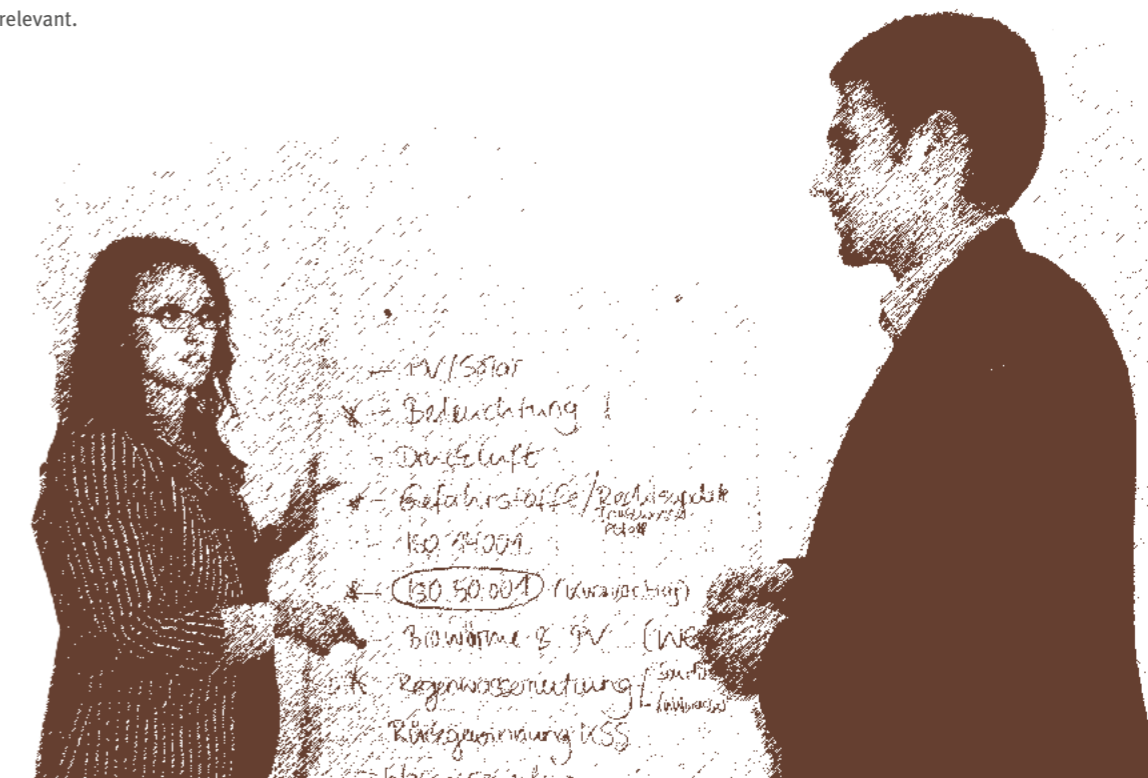 relevant.
– PV/Solar
x – Beleuchtung !
– Druckluft
x – Gefahrstoffe/Rechtsupdate
– ISO 14001
x – ISO 50.001 (Kurzvortrag)
Biowärme & PV
x Regenwassernutzung/
Rückgewinnung KSS